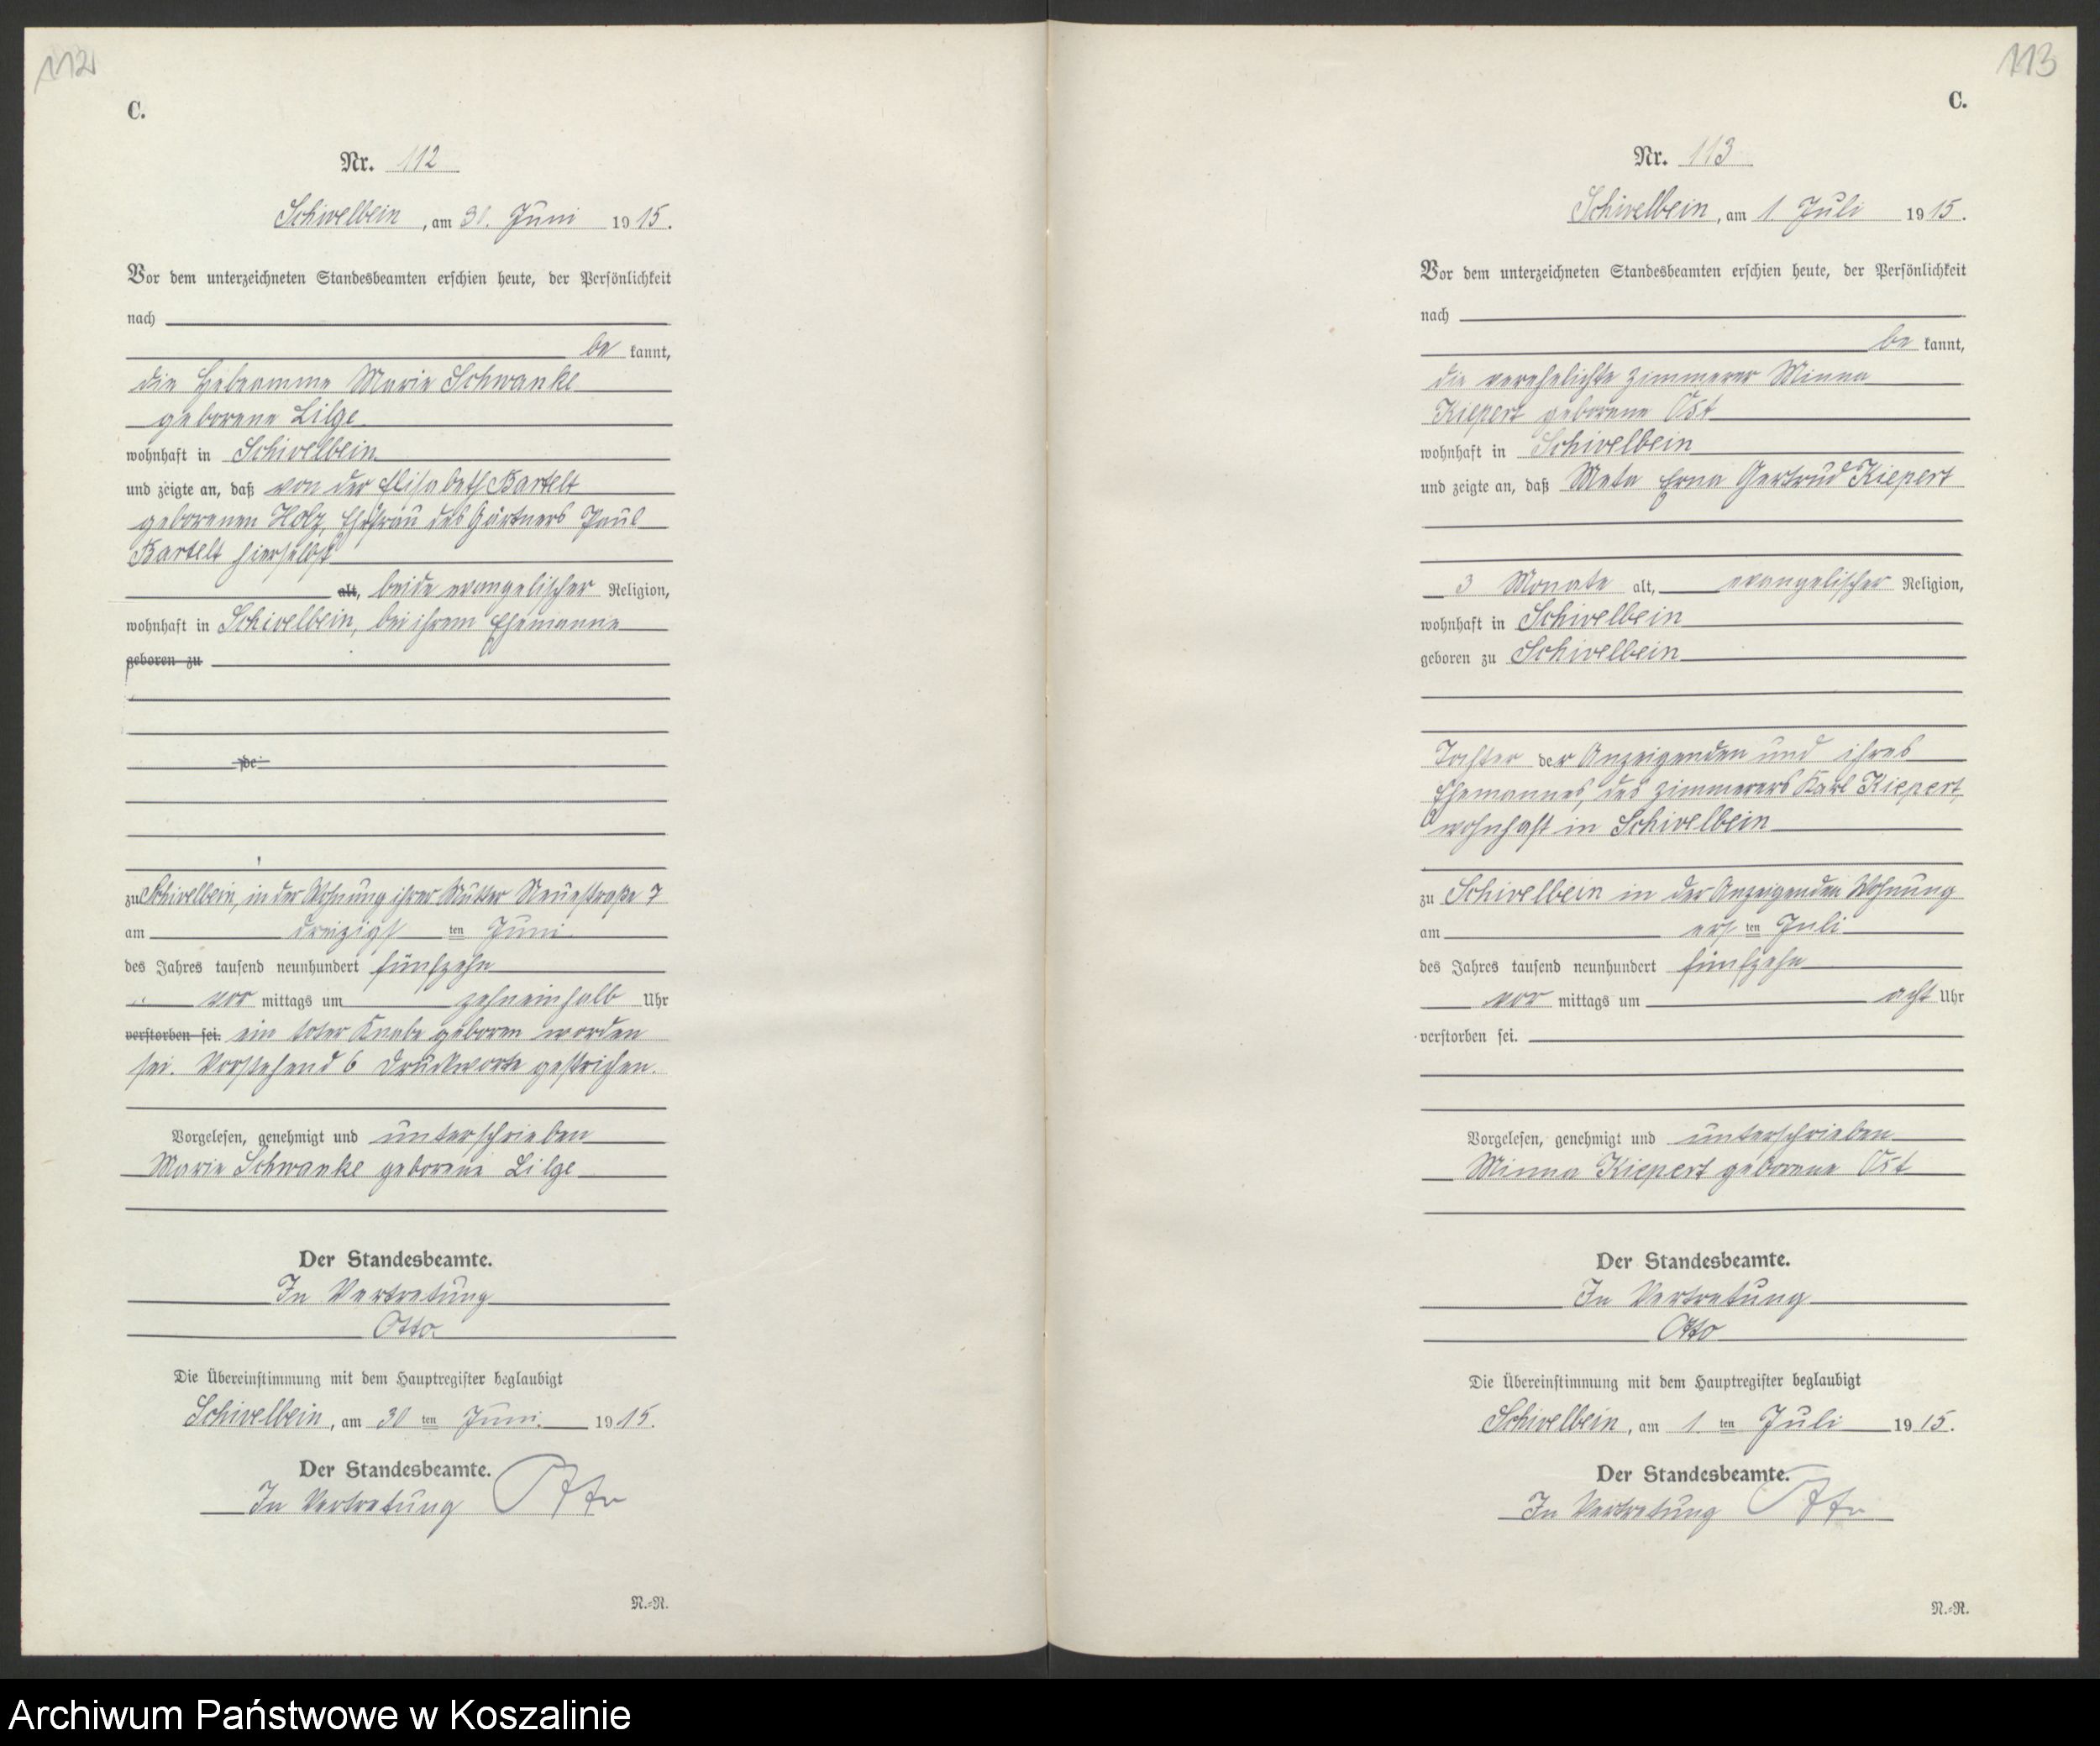 112
C.
Nr. 112
Schivelbein, am 30. Juni 1915.
Vor dem unterzeichneten Standesbeamten erschien heute, der Persönlichkeit
nach
be kannt,
die Hebeamme Marie Schwanke
geborene Lilge
wohnhaft in Schivelbein
und zeigte an, daß von der Elisabeth Bartelt
geborenen Holz, Ehefrau des Gärtners Paul
Bartelt hierselbst
alt, beide evangelischer Religion,
wohnhaft in Schivelbein, bei ihrem Ehemanne
geboren zu
de
zu Schivelbein, in der Wohnung ihrer Mutter Neuestraße 7
am dreizigst ten Juni
des Jahres tausend neunhundert fünfzehn
vor mittags um zehneinhalb Uhr
verstorben sei. ein toter Knabe geboren worden
sei. Vorstehend 6 Druckworte gestrichen.
Vorgelesen, genehmigt und unterschrieben
Marie Schwanke geborene Lilge
Der Standesbeamte.
In Vertretung
Otto.
Die Übereinstimmung mit dem Hauptregister beglaubigt
Schivelbein, am 30 ten Juni 1915.
Der Standesbeamte.
In Vertretung Otto
N.=R.
113
C.
Nr. 113
Schivelbein, am 1 Juli 1915.
Vor dem unterzeichneten Standesbeamten erschien heute, der Persönlichkeit
nach
be kannt,
die verehelichte Zimmerer Minna
Kiepert geborene Ost
wohnhaft in Schivelbein
und zeigte an, daß Meta Erna Gertrud Kiepert
3 Monate alt, evangelischer Religion,
wohnhaft in Schivelbein
geboren zu Schivelbein
Tochter der Anzeigenden und ihres
Ehemannes, des Zimmerers Karl Kiepert,
wohnhaft in Schivelbein
zu Schivelbein in der Anzeigenden Wohnung
am ers ten Juli
des Jahres tausend neunhundert fünfzehn
vor mittags um acht Uhr
verstorben sei.
Vorgelesen, genehmigt und unterschrieben
Minna Kiepert geborene Ost
Der Standesbeamte.
In Vertretung
Otto
Die Übereinstimmung mit dem Hauptregister beglaubigt
Schivelbein, am 1 ten Juli 1915.
Der Standesbeamte.
In Vertretung Otto
N.=R.
Archiwum Państwowe w Koszalinie